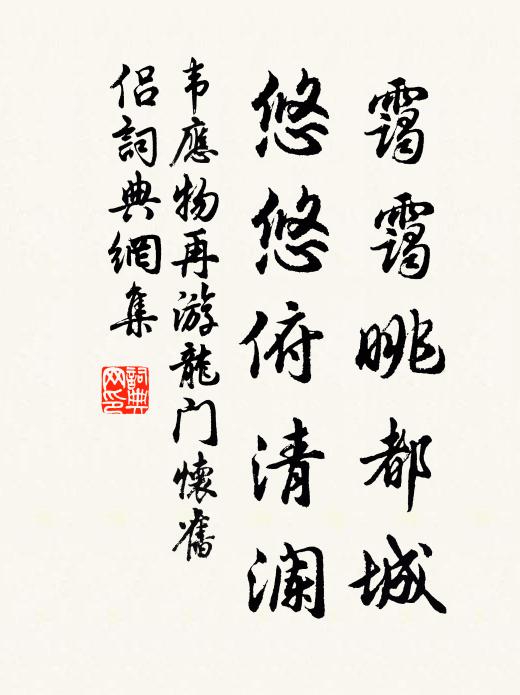 霭霭眺都城
悠悠俯清澜
韦應物再游龍门懷舊
侣詞典網集
詞典网印